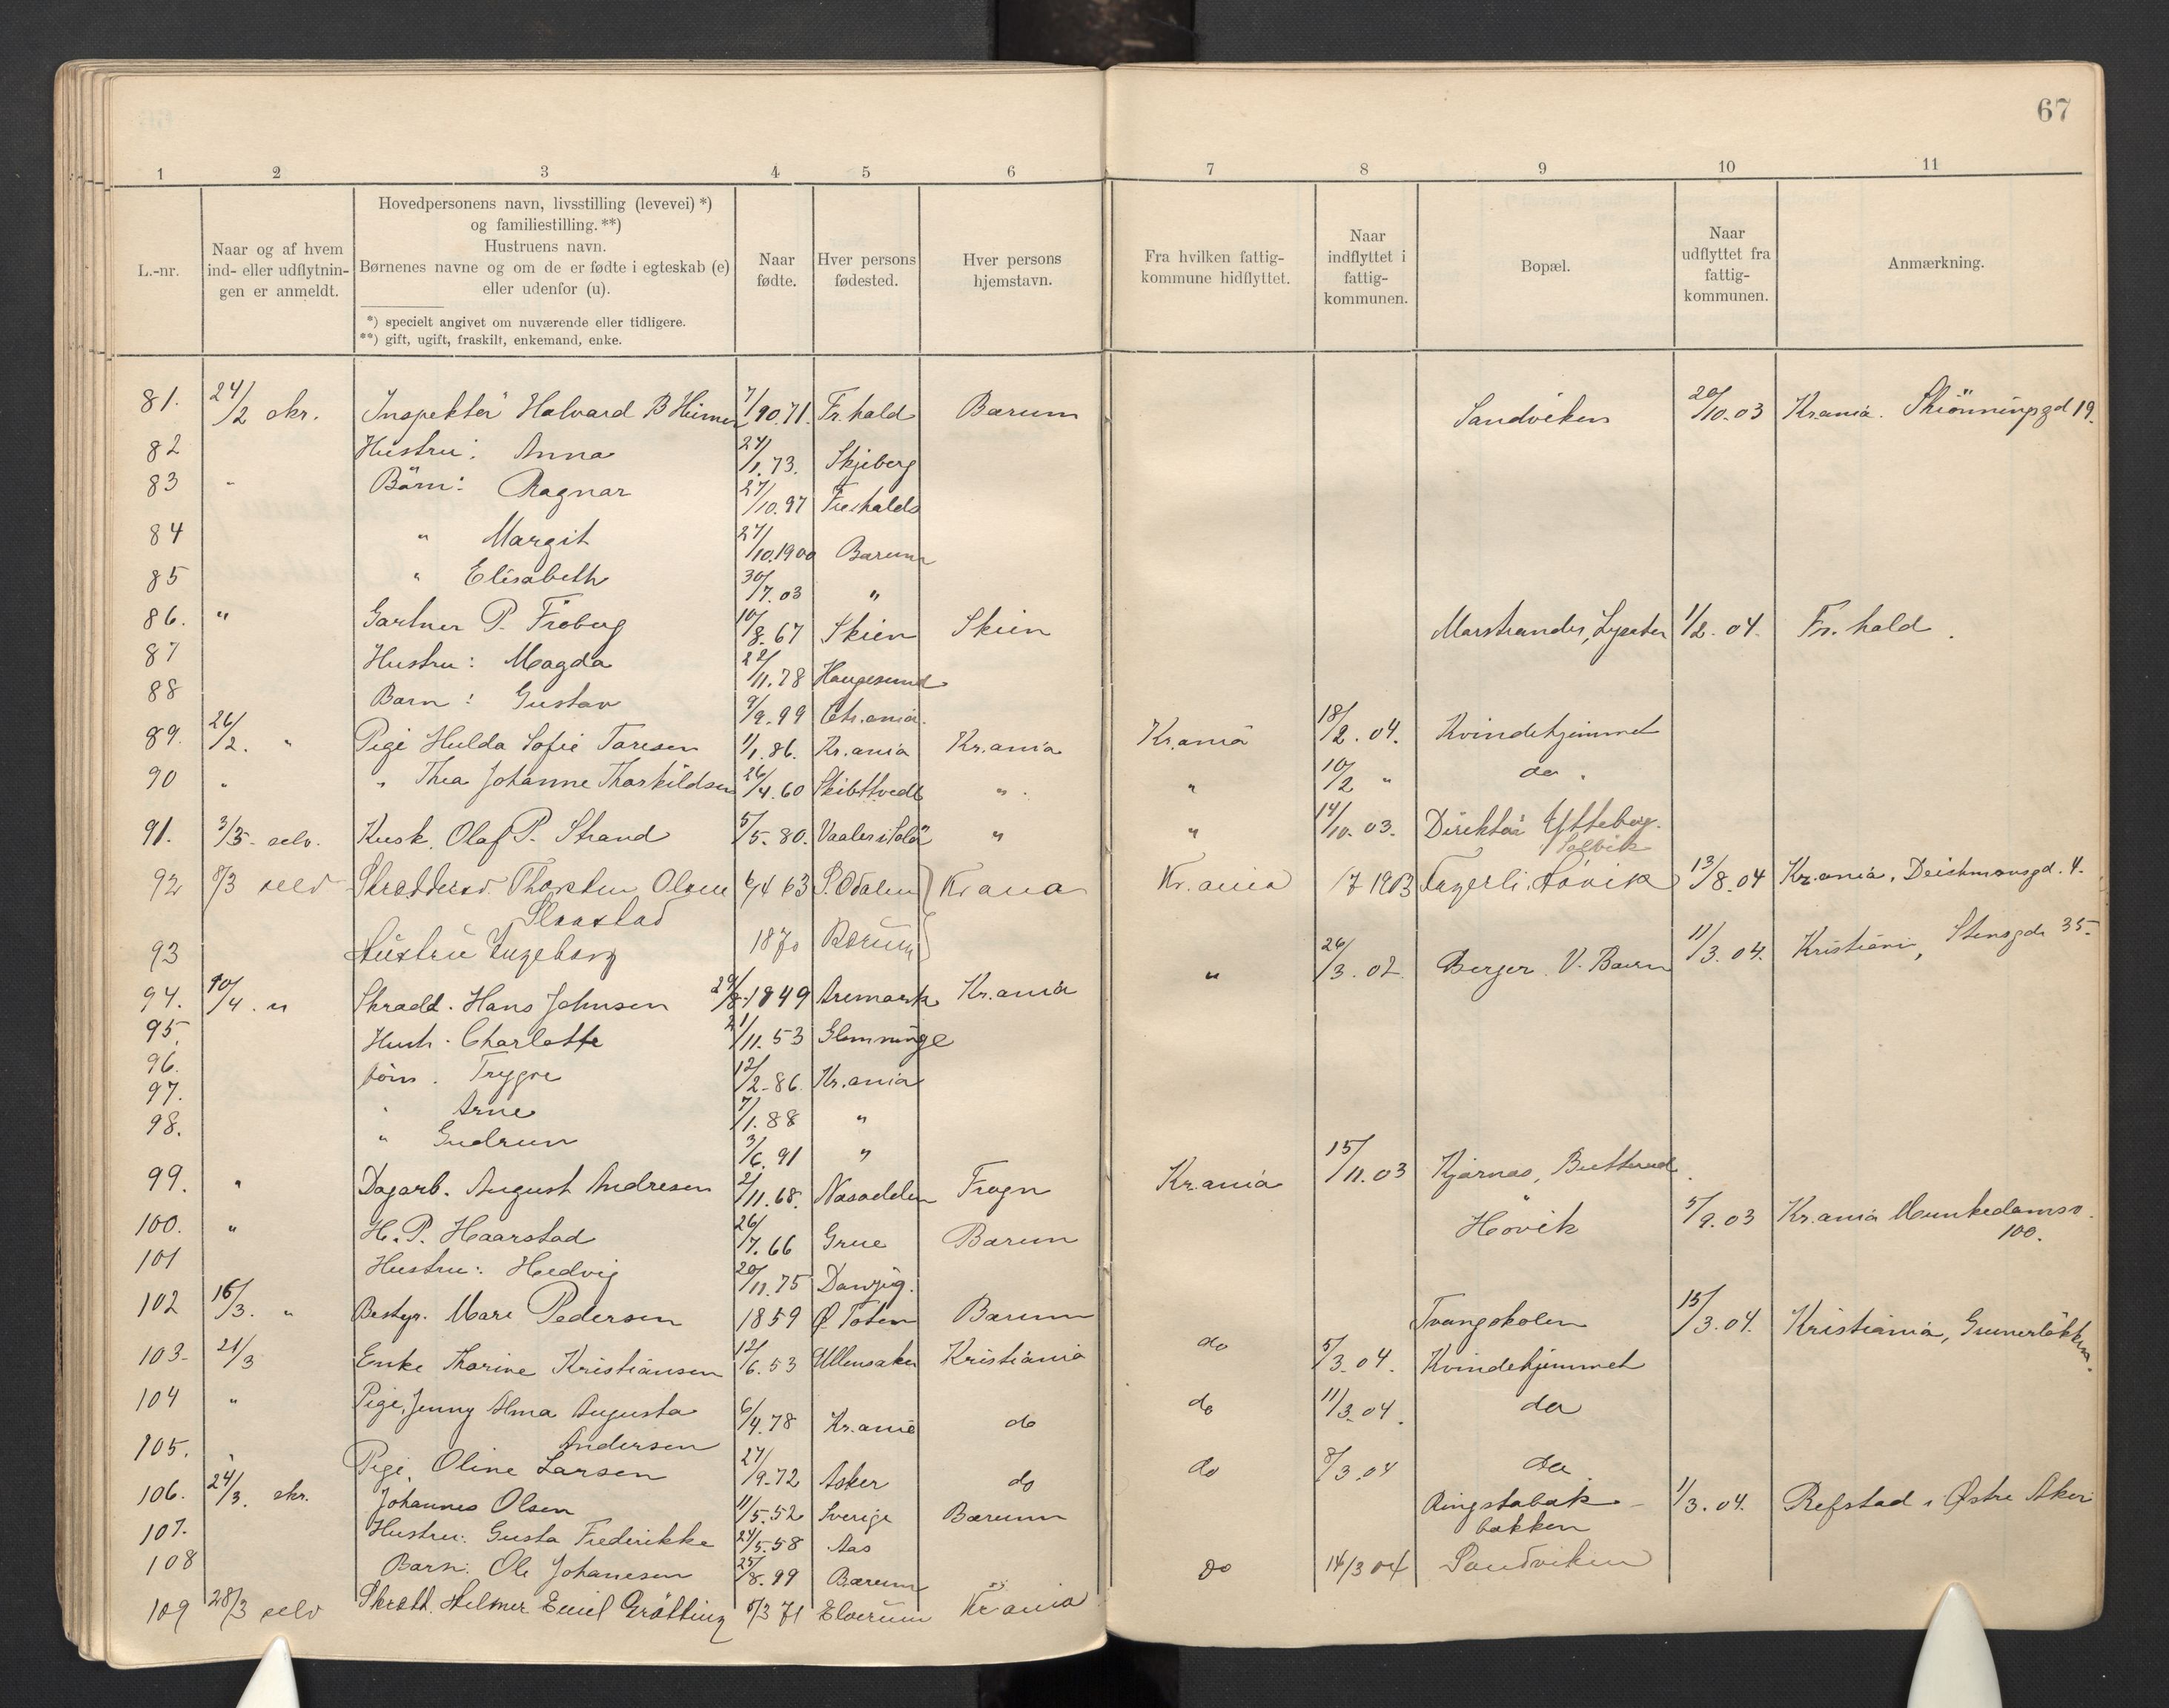 67
1 2 3 4 5 6 7 8 9 10 11
L.-nr.
Naar og af hvem
ind- eller udflytnin-
gen er anmeldt.
Hovedpersonens navn, livsstilling (levevei) *)
og familiestilling. **)
Hustruens navn.
Børnenes navne og om de er fødte i egteskab (e)
eller udenfor (u).
*) specielt angivet om nuværende eller tidligere.
**) gift, ugift, fraskilt, enkemand, enke.
Naar
fødte.
Hver persons
fødested.
Hver persons
hjemstavn.
Fra hvilken fattig-
kommune hidflyttet.
Naar
indflyttet i
fattig-
kommunen.
Bopæl.
Naar
udflyttet fra
fattig-
kommunen.
Anmærkning.
81. 24/2 skr. Inspektör Halvard B 7/10.71. Fr.hald Bærum Sandviken 20/10.03 Kr.ania. 19.
82 Hustru: Anna 24/1.73. Skjeberg
83 " Börn: Ragnar 27/10.97 Fr.hald
84 " Margit 27/10.1900 Bærum
85 " Elisabeth 30/7.03 "
86. " Gartner P. Fröberg 10/8.67 Skien Skien Marstrander, 1/2.04. Fr.hald.
87 Hustru: Magda 22/11.78 Haugesund
88 Barn: Gustav 9/9.99 Chr.ania.
89. 26/2. " Pige Hulda Sofie Taresen 1/1.86. Kr.ania Kr.ania Kr.ania 18/2.04. Kvindehjemmet
90 " " Thea Johanne Thorkildsen 26/4.60 Skibttvedt " " 10/2 " do.
91. 3/3. selv. Kusk. Olaf P. Strand 5/5.80. Vaaler i Solör " " 14/10.03. Direktör Ytteberg.
Solvik
92 8/3 selv Skreddersv. Thorsten Olsen 6/4 63 S. Odalen Kr.ania Kr.ania /7 1903 Fagerli, Hövik 13/8.04 Kr.ania, Deichmansgd. 4.
93 Hustru Ingeborg 1870 Bærum
94. 10/4. " Skrædd. Hans Johnsen 29/8.1849 Aremark Kr.ania " 26/3.02. Berger. V. Bærum 11/3.04. Kristiania, Stensgd 35.
95. Hustr. Charlotte 21/11.53 Glemminge
96. börn. Trygve 12/2.86. Kr.ania
97. " Arne 7/1.88 "
98. " Gudrun 3/6.91 "
99. " Dagarb. August Andresen 2/11.68. Næsodden Frogn Kr.ania 15/11.03 Kjørnæs,
100. " H. P. Haarstad 26/7.66 Grue Bærum Hövik 5/9.03 Kr.ania Munkedamsv.
100.
101 Hustru: Hedvig 20/11.75 Danzig.
102 16/3. " Bestyr. Mari Pedersen 1859 Ø. Toten Bærum Tvangskolen 15/3.04. Kristiania, Grünerlökken.
103. 21/3 Enke Thorine Kristiansen 12/6.53 Ullensaker Kristiania do 5/3.04. Kvindehjemmet
104 " Pige, Jenny Alma Augusta
Andersen 6/4.78 Kr.ania do do 11/3.04. do
105. " Pige, Oline Larsen 27/9.72 Asker do do 8/3.04 do
106. 24/3. skr. Johannes Olsen 11/5.52 Sverige Bærum Ringstabæk-
bakken 1/3.04. Refstad i Østre Aker
107. Hustru: Gusta Frederikke 24/5.58 Aas
108 Barn: Ole Johanesen 25/8.99 Bærum
109 28/3 selv Skrædd. Helmer Emil Grötting 5/3 71 Elverum Kr.ania do 14/3 04 Sandviken